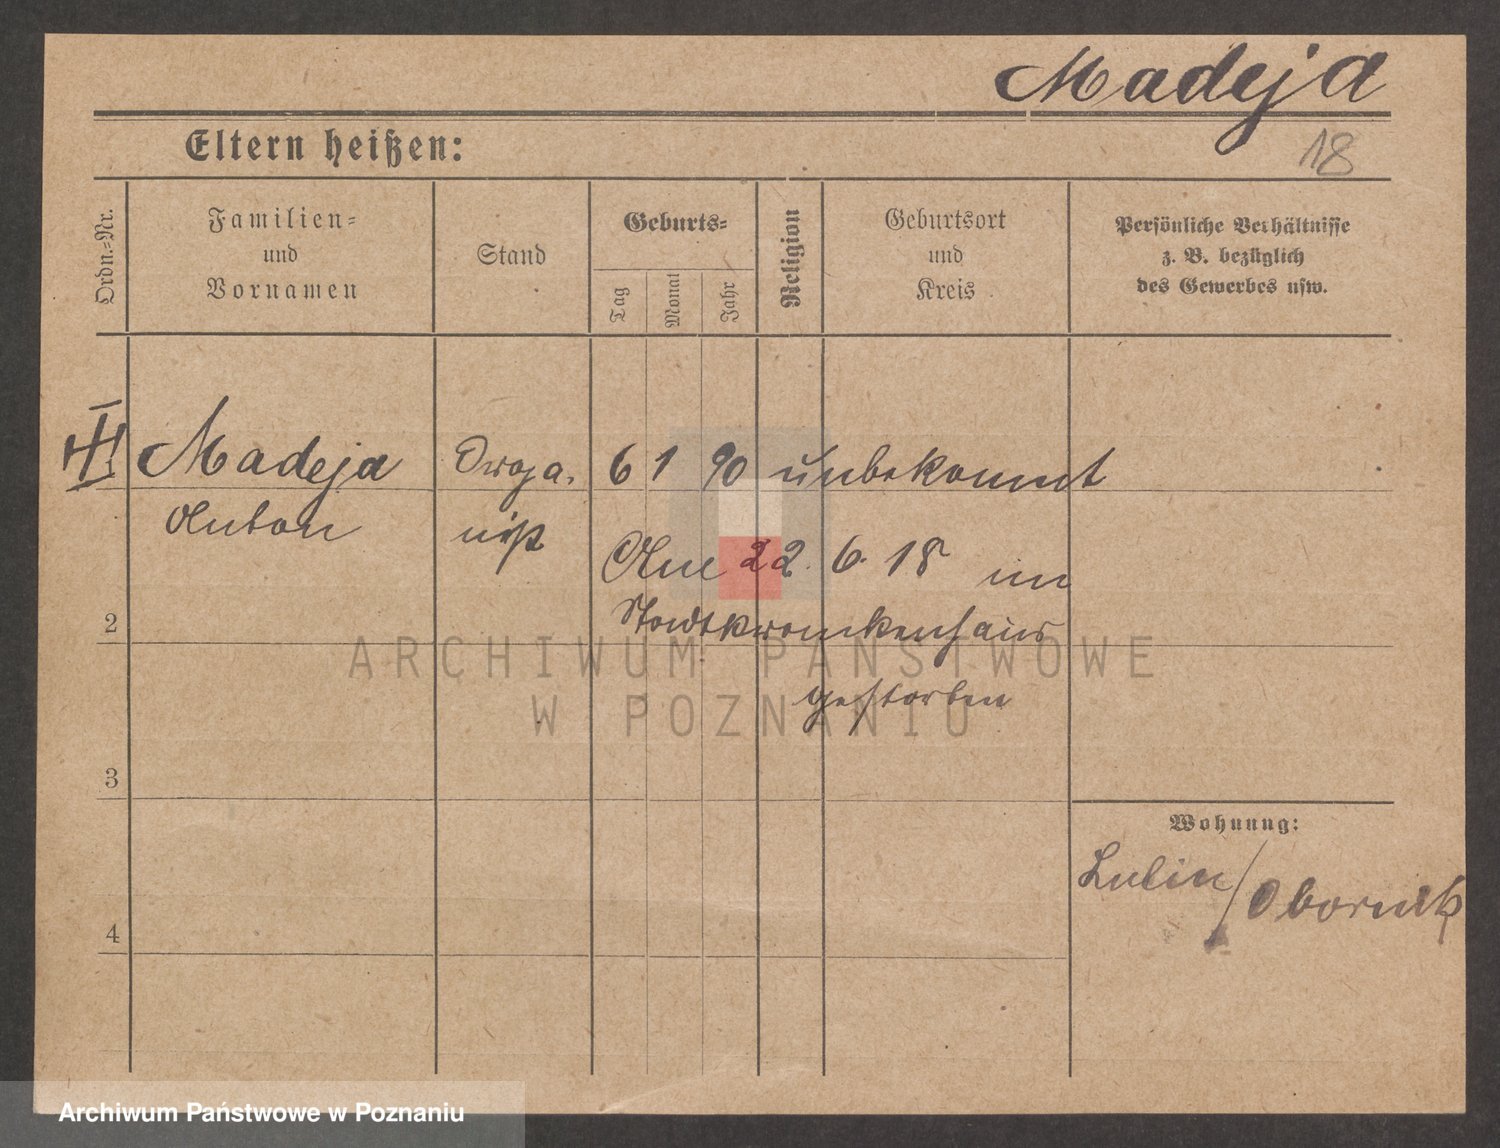 Madeja
18
Eltern heißen:
Ordn.-Nr.
Familien-
und
Vornamen
Stand
Geburts-
Tag
Monat
Jahr
Religion
Geburtsort
und
Kreis
Persönliche Verhältnisse
z. B. bezüglich
des Gewerbes usw.
Madeja Orga- 6 1 90 unbekannt
Anton nist
Am 22. 6. 18 im
2
Stadtkrankenhaus
gestorben
3
Wohnung:
Lulin / Obornik
4
ARCHIWUM PAŃSTWOWE
W POZNANIU
Archiwum Państwowe w Poznaniu